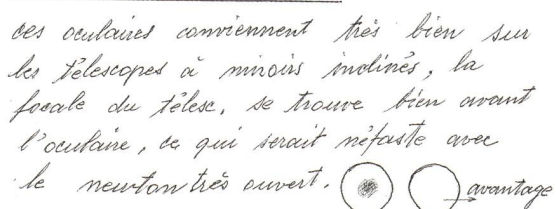 ces oculaires conviennent très bien sur
les télescopes à miroirs inclinés, la
focale du télesc. se trouve bien avant
l'oculaire, ce qui serait néfaste avec
le newton très ouvert. avantage